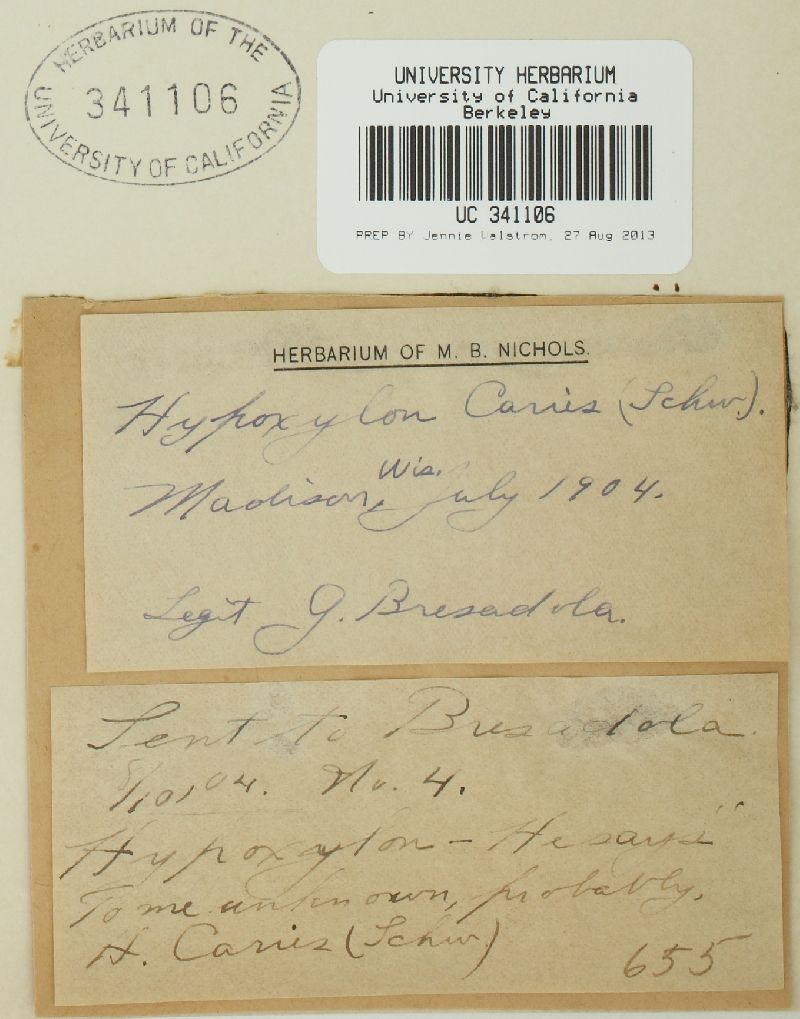 HERBARIUM OF THE
341106
UNIVERSITY OF CALIFORNIA
UNIVERSITY HERBARIUM
University of California
Berkeley
UC 341106
PREP BY Jennie Walstrom, 27 Aug 2013
HERBARIUM OF M. B. NICHOLS.
Hypoxylon Caries (Schw).
Wis.
Madison, July 1904.
Legit G. Bresadola.
Sent to Bresadola.
8/10/04. No. 4.
Hypoxylon – He says "
To me unknown, probably,
H. Caries (Schw)
655